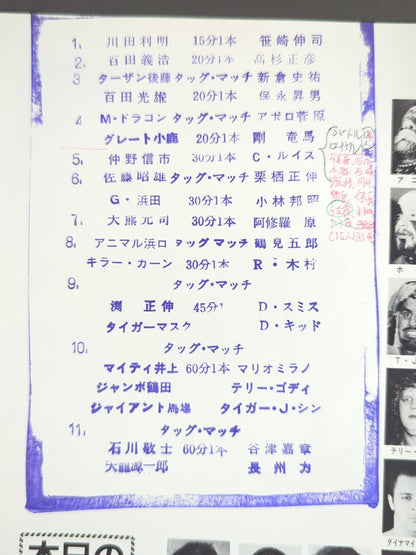 1, 川田利明 15分1本 笹崎伸司
2, 百田義浩 20分1本 高杉正彦
3 ターザン後藤 タッグ・マッチ 新倉史祐
百田光雄 15分1本 保永昇男
4 M・ドラゴン タッグ・マッチ アポロ菅原
グレート小鹿 20分1本 剛 竜馬
5, 仲野信市 30分1本 C・ルイス
6, 佐藤昭雄 タッグ・マッチ 栗栖正伸
G・浜田 30分1本 小林邦昭
7, 大熊元司 30分1本 阿修羅 原
8, アニマル浜口 タッグマッチ 鶴見五郎
キラー・カーン 30分1本 R・木村
9, タッグ・マッチ
渕 正伸 45分1 D・スミス
タイガーマスク D・キッド
10, タッグ・マッチ
マイティ井上 60分1本 マリオミラノ
ジャンボ鶴田 テリー・ゴディ
ジャイアント馬場 タイガー・J・シン
11, タッグ・マッチ
石川敬士 60分1本 谷津嘉章
天龍源一郎 長州 力
バトル
ロイヤル
シ
ア
ホ
T・J
テリー・
ダイナマイ
本日の